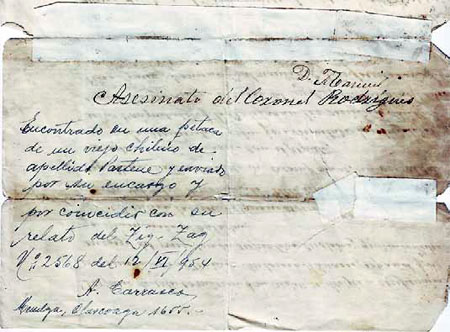 Asesinato del Coronel Rodríguez
Encontrado en una petaca
de un viejo chileno de
apellido Pastene y enviado
por su encargo y
por coincidir con su
relato del Zig-Zag
Nº 2568 del 12/VI/954
A. Carrasco
1655.-